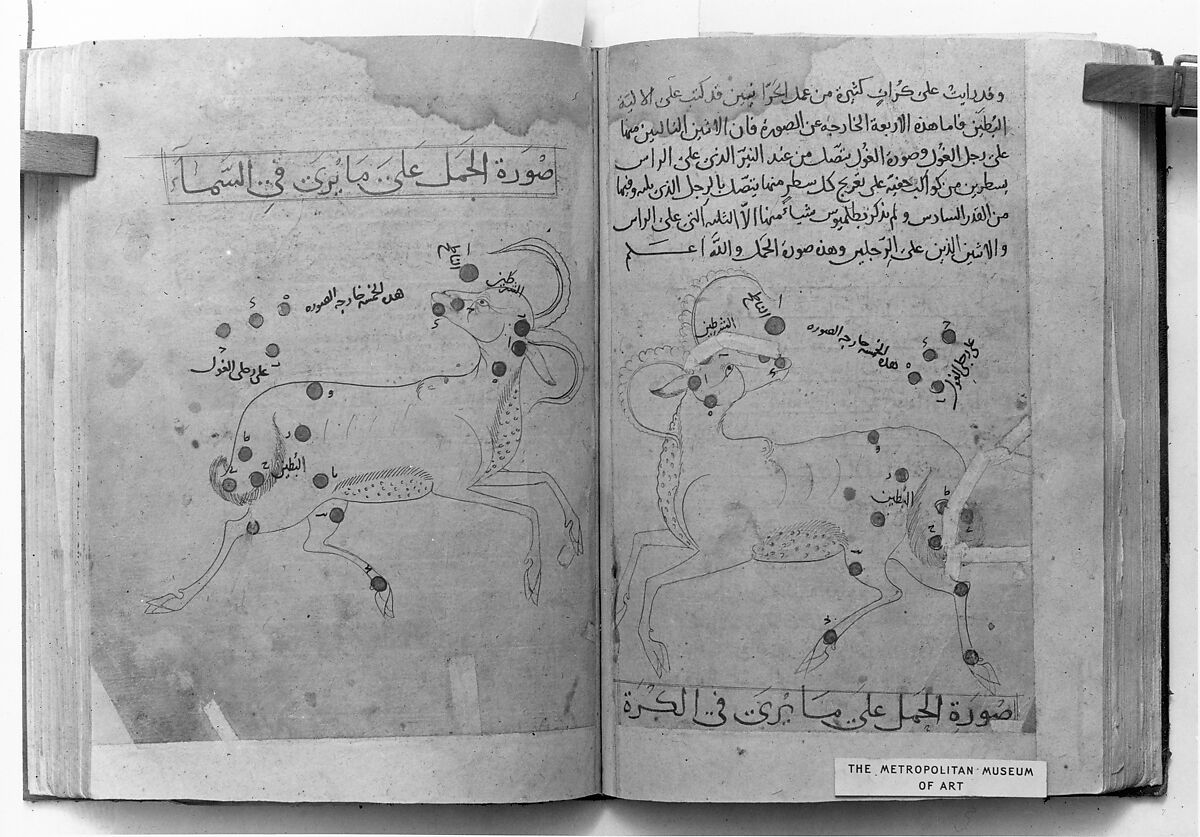 وقد رايت على كرات كثيرة من عمل الحرانيين قد كتب على الالية
البطين فاما هذه الاربعة الخارجه عن الصورة فان الاثنين التاليين منها
على رجل الغول وصورة الغول يتصل من عند النير الذى على الراس
بسطرين من كواكب خفيه على تعريج كل سطر منهما يتصل بالرجل الذى يليه وفيها
من القدر السادس ولم يذكر بطلميوس شيئا منها الا الثلثه التى على الراس
والاثنين الذين على الرجلين وهذه صورة الحمل والله اعلم
الناطح
ا
الشرطين
هذه الخمسه خارجه الصوره
على رجل الغول
البطين
صورة الحمل على ما يرى في الكرة
صورة الحمل على ما يرى في السماء
الناطح
ا
الشرطين
هذه الخمسه خارجه الصوره
على رجل الغول
البطين
THE METROPOLITAN MUSEUM
OF ART